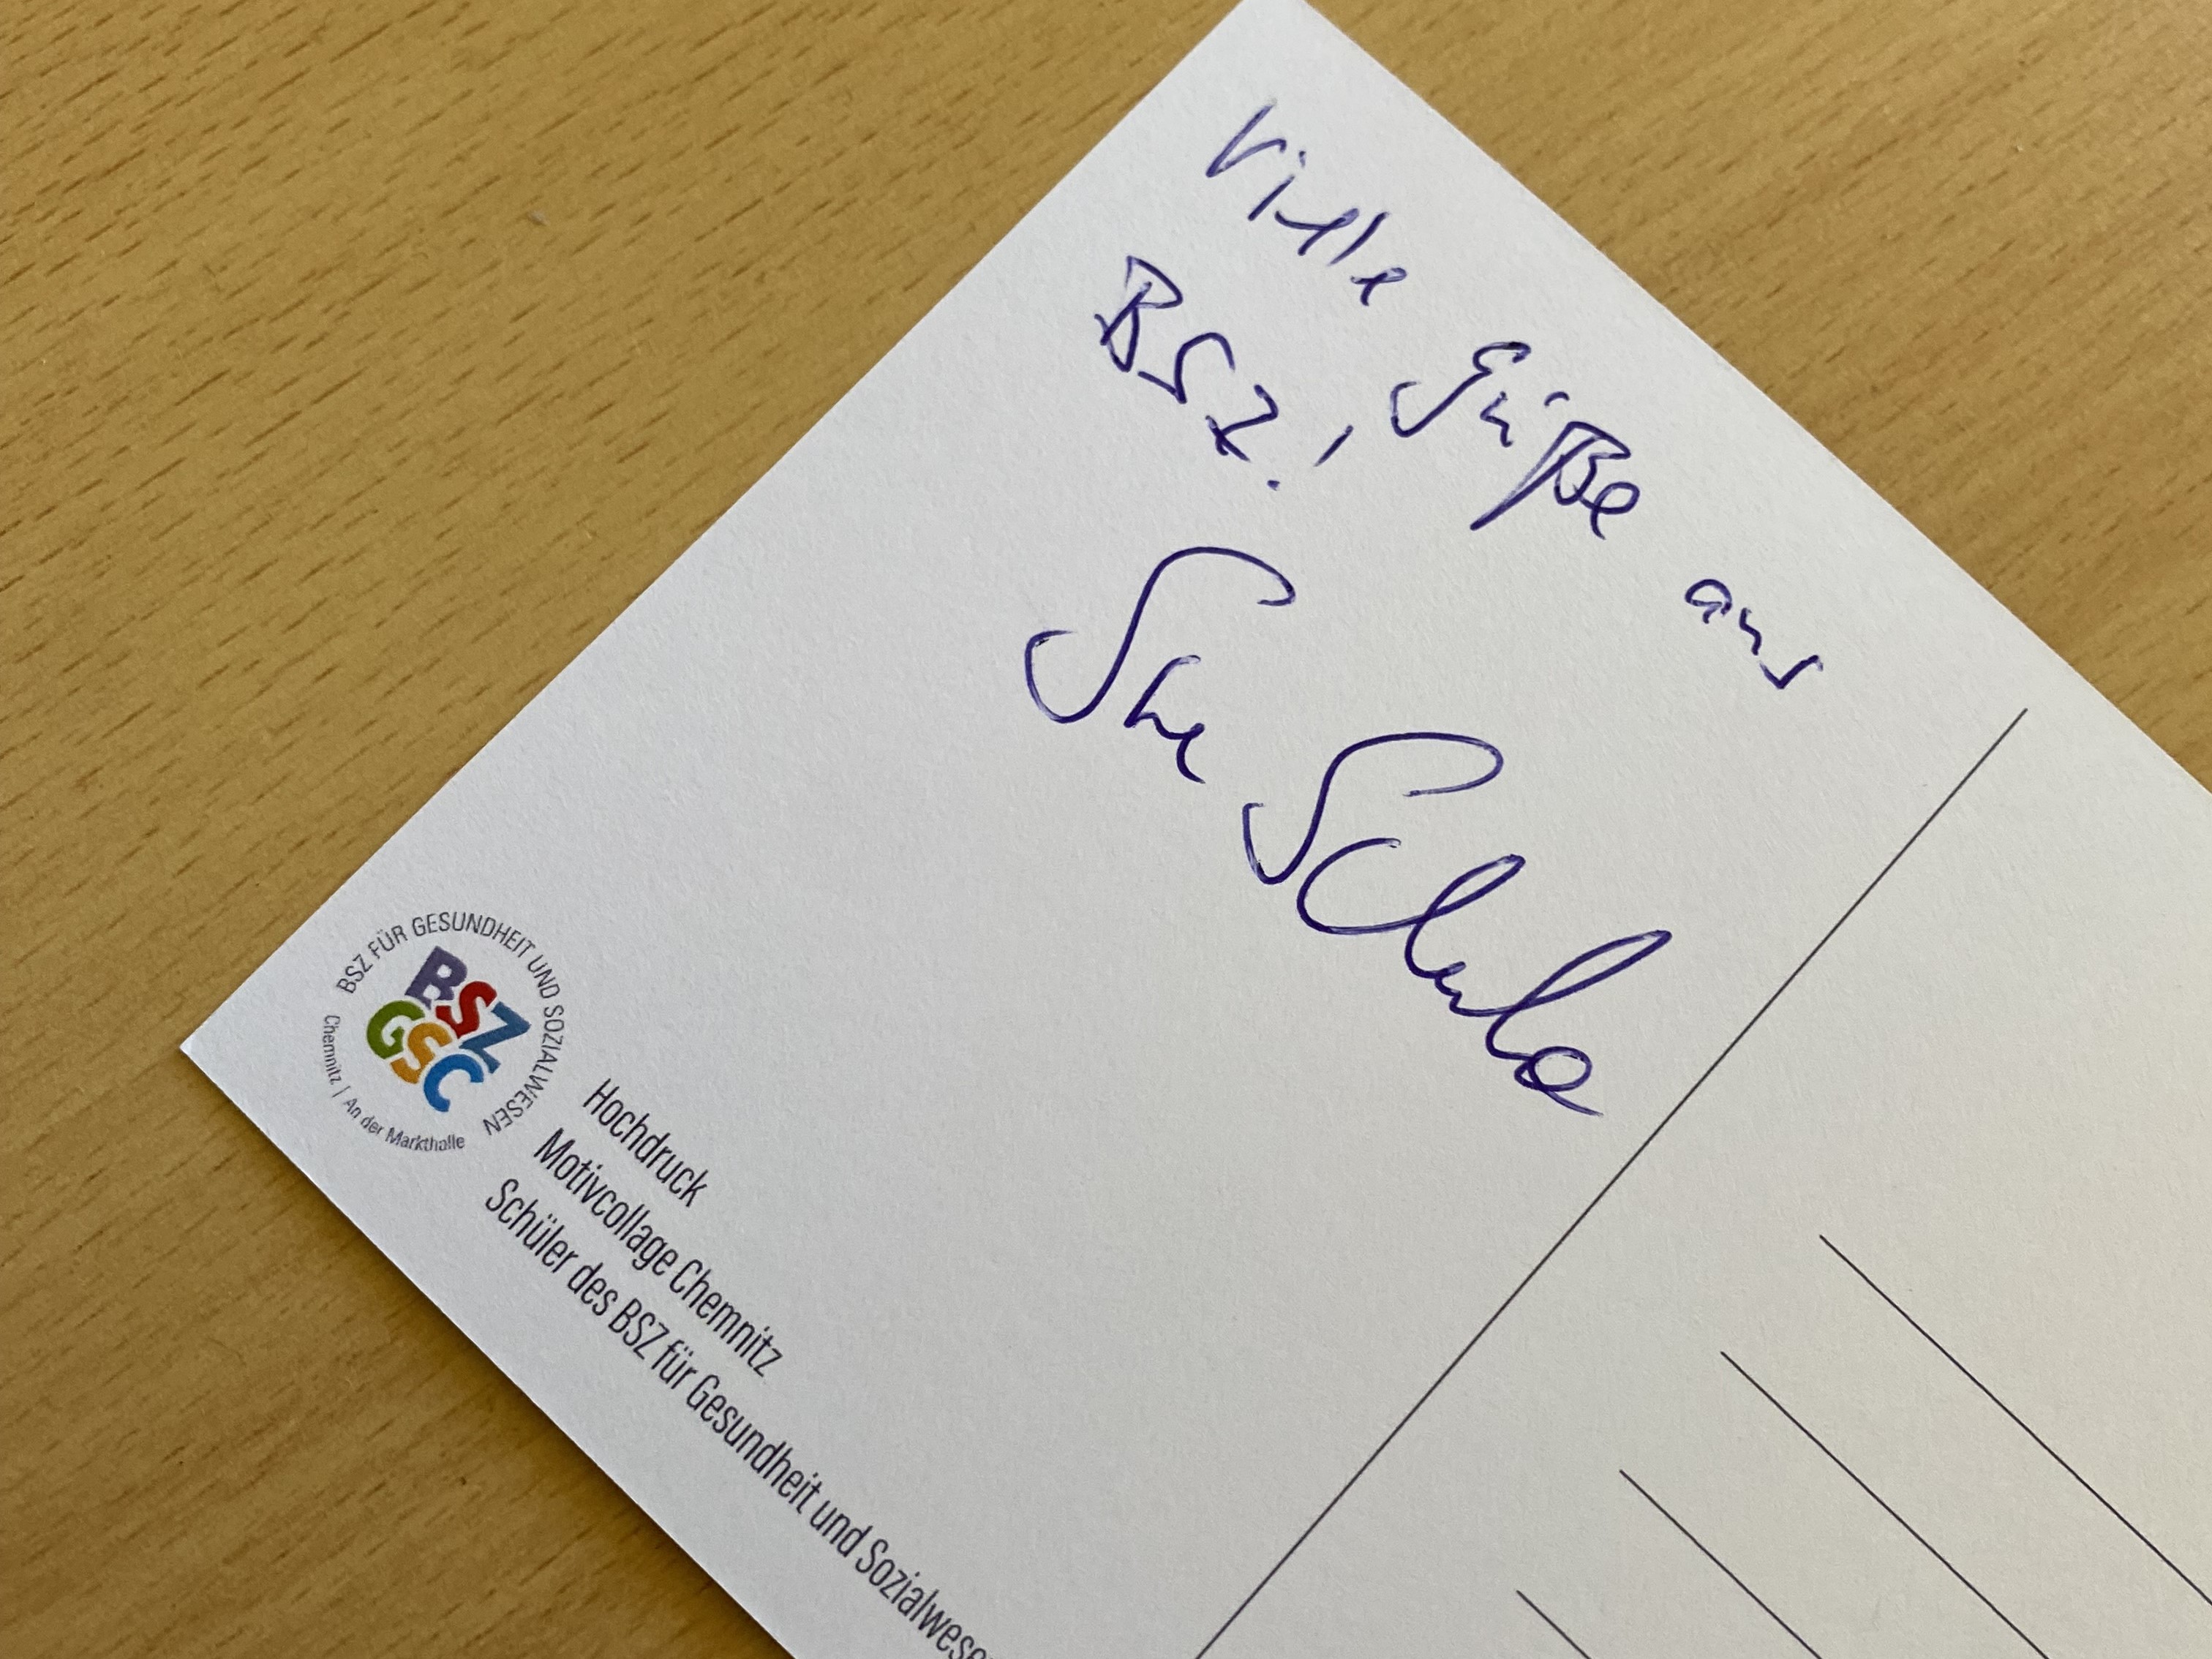 Viele Grüße aus
BSZ!
BSZ FÜR GESUNDHEIT UND SOZIALWESEN
BSZ
GSC
Chemnitz | An der Markthalle
Hochdruck
Motivcollage Chemnitz
Schüler des BSZ für Gesundheit und Sozialwese